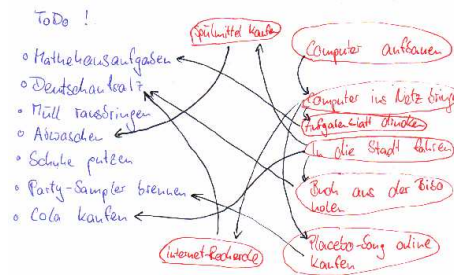 ToDo !
Mathehausaufgaben
Deutschaufsatz
Müll rausbringen
Abwaschen
Schuhe putzen
Party-Sampler brennen
Cola kaufen
Spülmittel kaufen
Computer aufbauen
Computer ins Netz bringen
Aufgabenblatt drucken
In die Stadt fahren
Buch aus der Bibo
holen
Placebo-Song online
kaufen
internet-Recherche